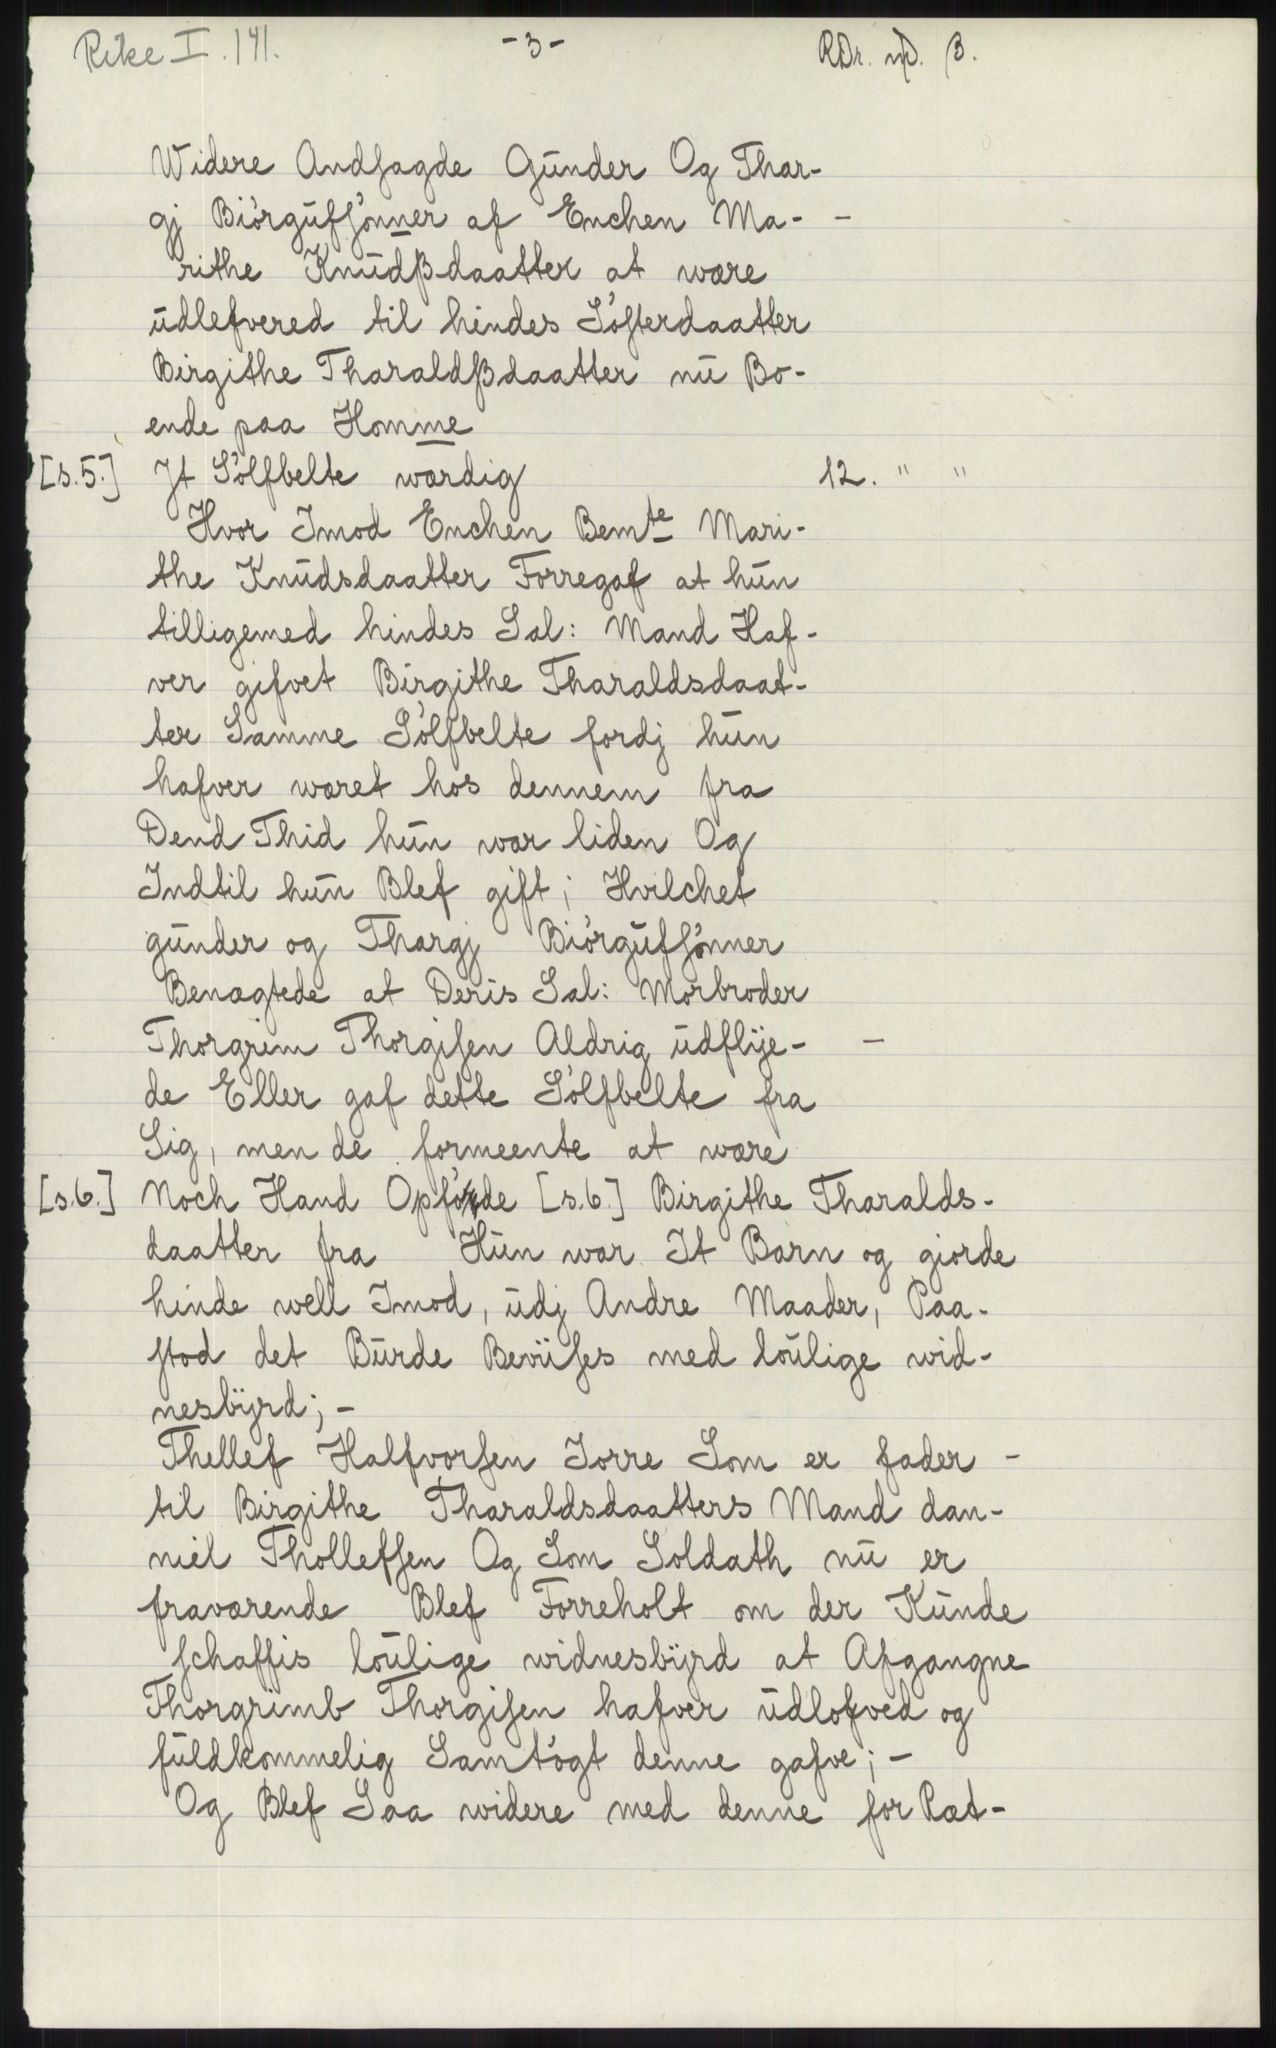 Rike I. 141. -3- RDr. B.
Widere Andsagde Gūnder Og Thar-
gj Biörgūfsönner af Enchen Ma- -
rithe Knūdßdaatter at wære
ūdlefvered til hindes Sösterdaatter
Birgithe Tharaldßdaatter nū Bo-
ende paa Homme
[s.5.] It Sölfbelte wærdig 12. " "
Hvor Imod Enchen Bemte Mari-
the Knūdsdaatter Forregaf at hūn
tilligemed hindes Sal: Mand Haf-
ver gifvet Birgithe Tharaldsdaat-
ter Samme Sölfbelte fordj hūn
hafver wæret hos dennem fra
Dend Thid hūn war liden Og
Indtil hūn Blef gift; Hvilchet
gūnder og Thargj Biörgūfsönner
Benægtede at Deris Sal: Morbroder
Thorgrim Thorgisen Aldrig ūdflÿe- -
de Eller gaf dette Sölfbelte fra
Sig, men de formeente at wære
[s.6.] Noch Hand Opföde [s.6] Birgithe Tharalds-
daatter fra Hūn war It Barn og giorde
hinde well Imod, ūdj Andre Maader, Paa-
stod det Būrde Beviises med loūlige wid-
nesbÿrd; -
Thellef Halfvorsen Jorre Som er fader -
til Birgithe Tharaldsdaatters Mand dan-
niel Thollefsen Og Som Soldath nū er
fraværende Blef Forreholt om der Kūnde
schaffis loūlige widnesbÿrd at Afgangne
Thorgrimb Thorgisen hafver ūdlofved og
fūldkommelig Samtögt denne gafve; -
Og Blef Saa widere med denne for Ræt-